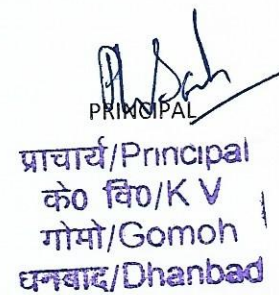 PRINCIPAL
प्राचार्य/Principal
के० वि०/K V
गोमो/Gomoh
धनबाद/Dhanbad